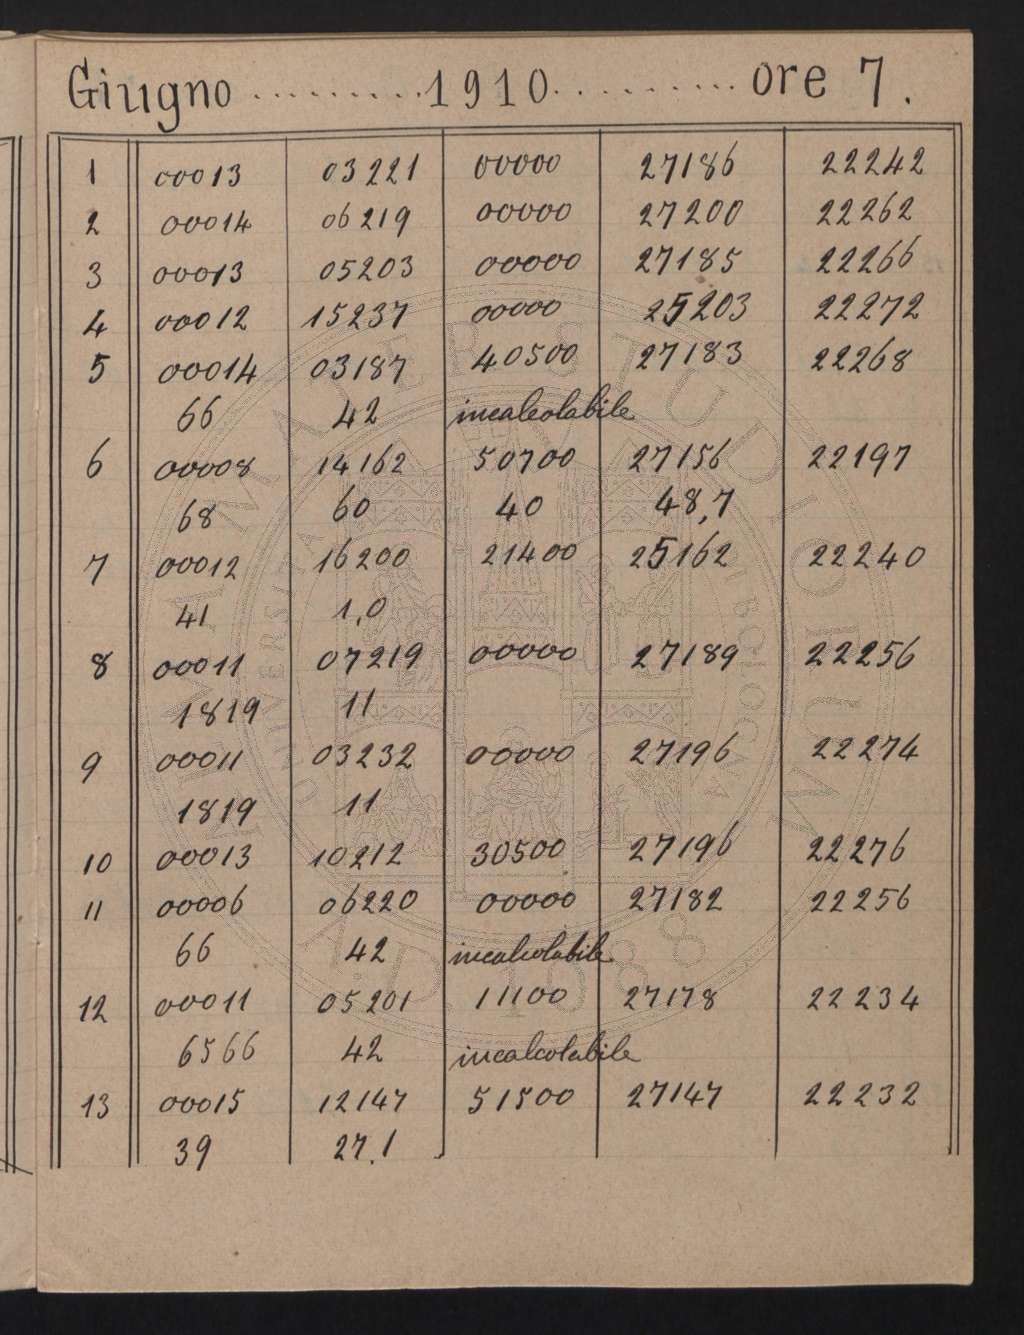 Giugno .......... 1910 .......... ore 7.
1 00013 03221 00000 27186 22242
2 00014 06219 00000 27200 22262
3 00013 05203 00000 27185 22266
4 00012 15237 00000 25203 22272
5 00014 03187 40500 27183 22268
66 42 incalcolabile
6 00008 14162 50700 27156 22197
68 60 40 48,7
7 00012 16200 21400 25162 22240
41 1,0
8 00011 07219 00000 27189 22256
1819 11
9 00011 03232 00000 27196 22274
1819 11
10 00013 10212 30500 27196 22276
11 00006 06220 00000 27182 22256
66 42 incalcolabile
12 00011 05201 11100 27178 22234
6566 42 incalcolabile
13 00015 12147 51500 27147 22232
39 27.1
ALMA MATER STUDIORUM
UNIVERSITA
BOLOGNA
A.D. 1088